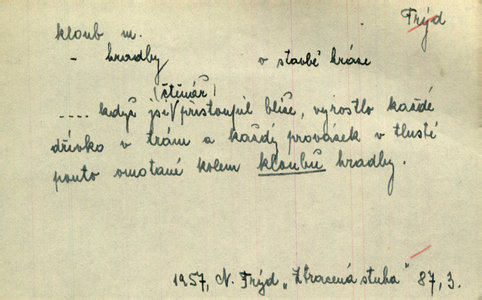 Frýd
kloub m.
- hradby o stavbě hráze
(čtenář)
.... když jsi přistoupil blíže, vyrostlo každé
dřívko v trám a každý provázek v tlusté
pouto omotané kolem kloubů hradby.
1957, N. Frýd „Ztracená stuha" 87, 3.